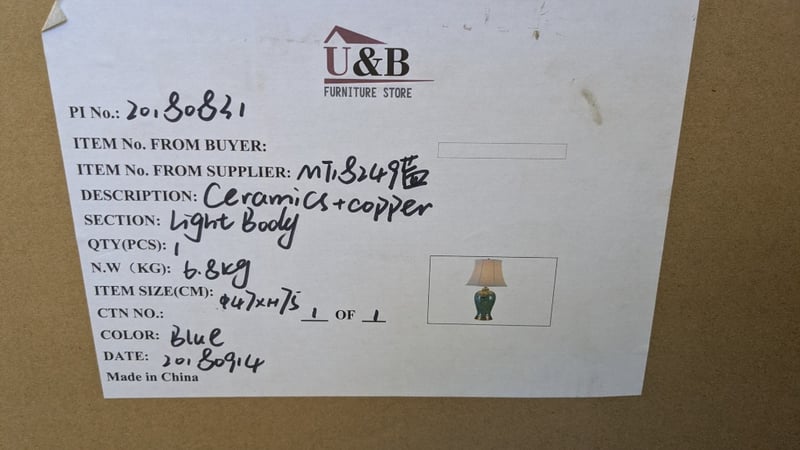 U&B
FURNITURE STORE
PI No.: 20180831
ITEM No. FROM BUYER:
ITEM No. FROM SUPPLIER: MT18249蓝
DESCRIPTION: Ceramics+copper
SECTION: Light Body
QTY(PCS): 1
N.W (KG): 6.8kg
ITEM SIZE(CM): Φ47×H75
CTN NO.: 1 OF 1
COLOR: Blue
DATE: 20180914
Made in China